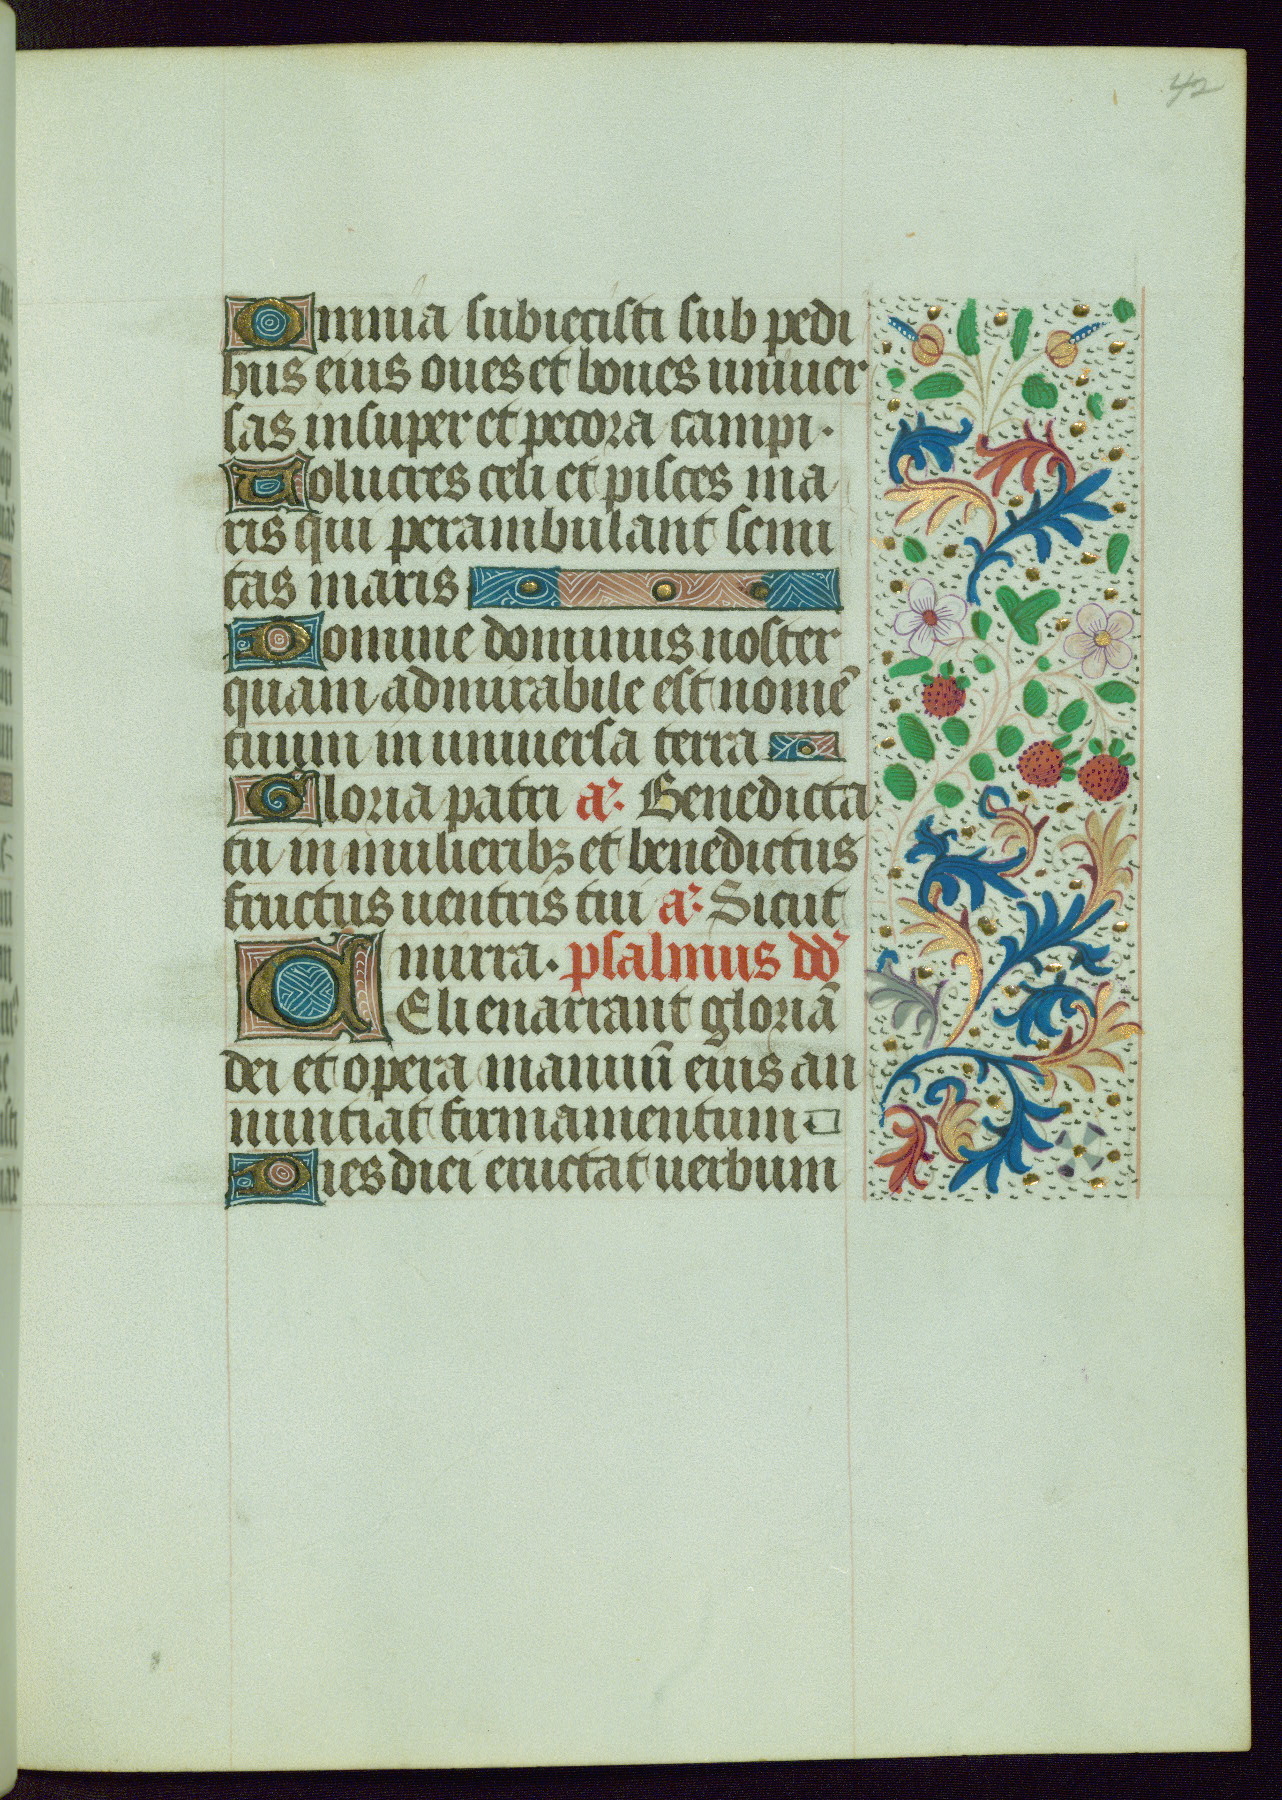 42
Omnia subiecisti sub pedi
bus eius oues et boues uniuer
sas insuper et pecora campi.
Uolucres celi et pisces ma
ris qui perambulant semi
tas maris
Domine dominus noster
quam admirabile est nomē
tuum in uniuersa terra
Gloria patri a᷒. Benedicta
tu in mulieribꝫ et benedictus
fructus uentris tui a᷒. Sicut
murra. psalmus dd᷒
CEli enarrant gloriā
dei et opera manuū eius an
nuntiat firmamentum
Dies diei eructat uerbum